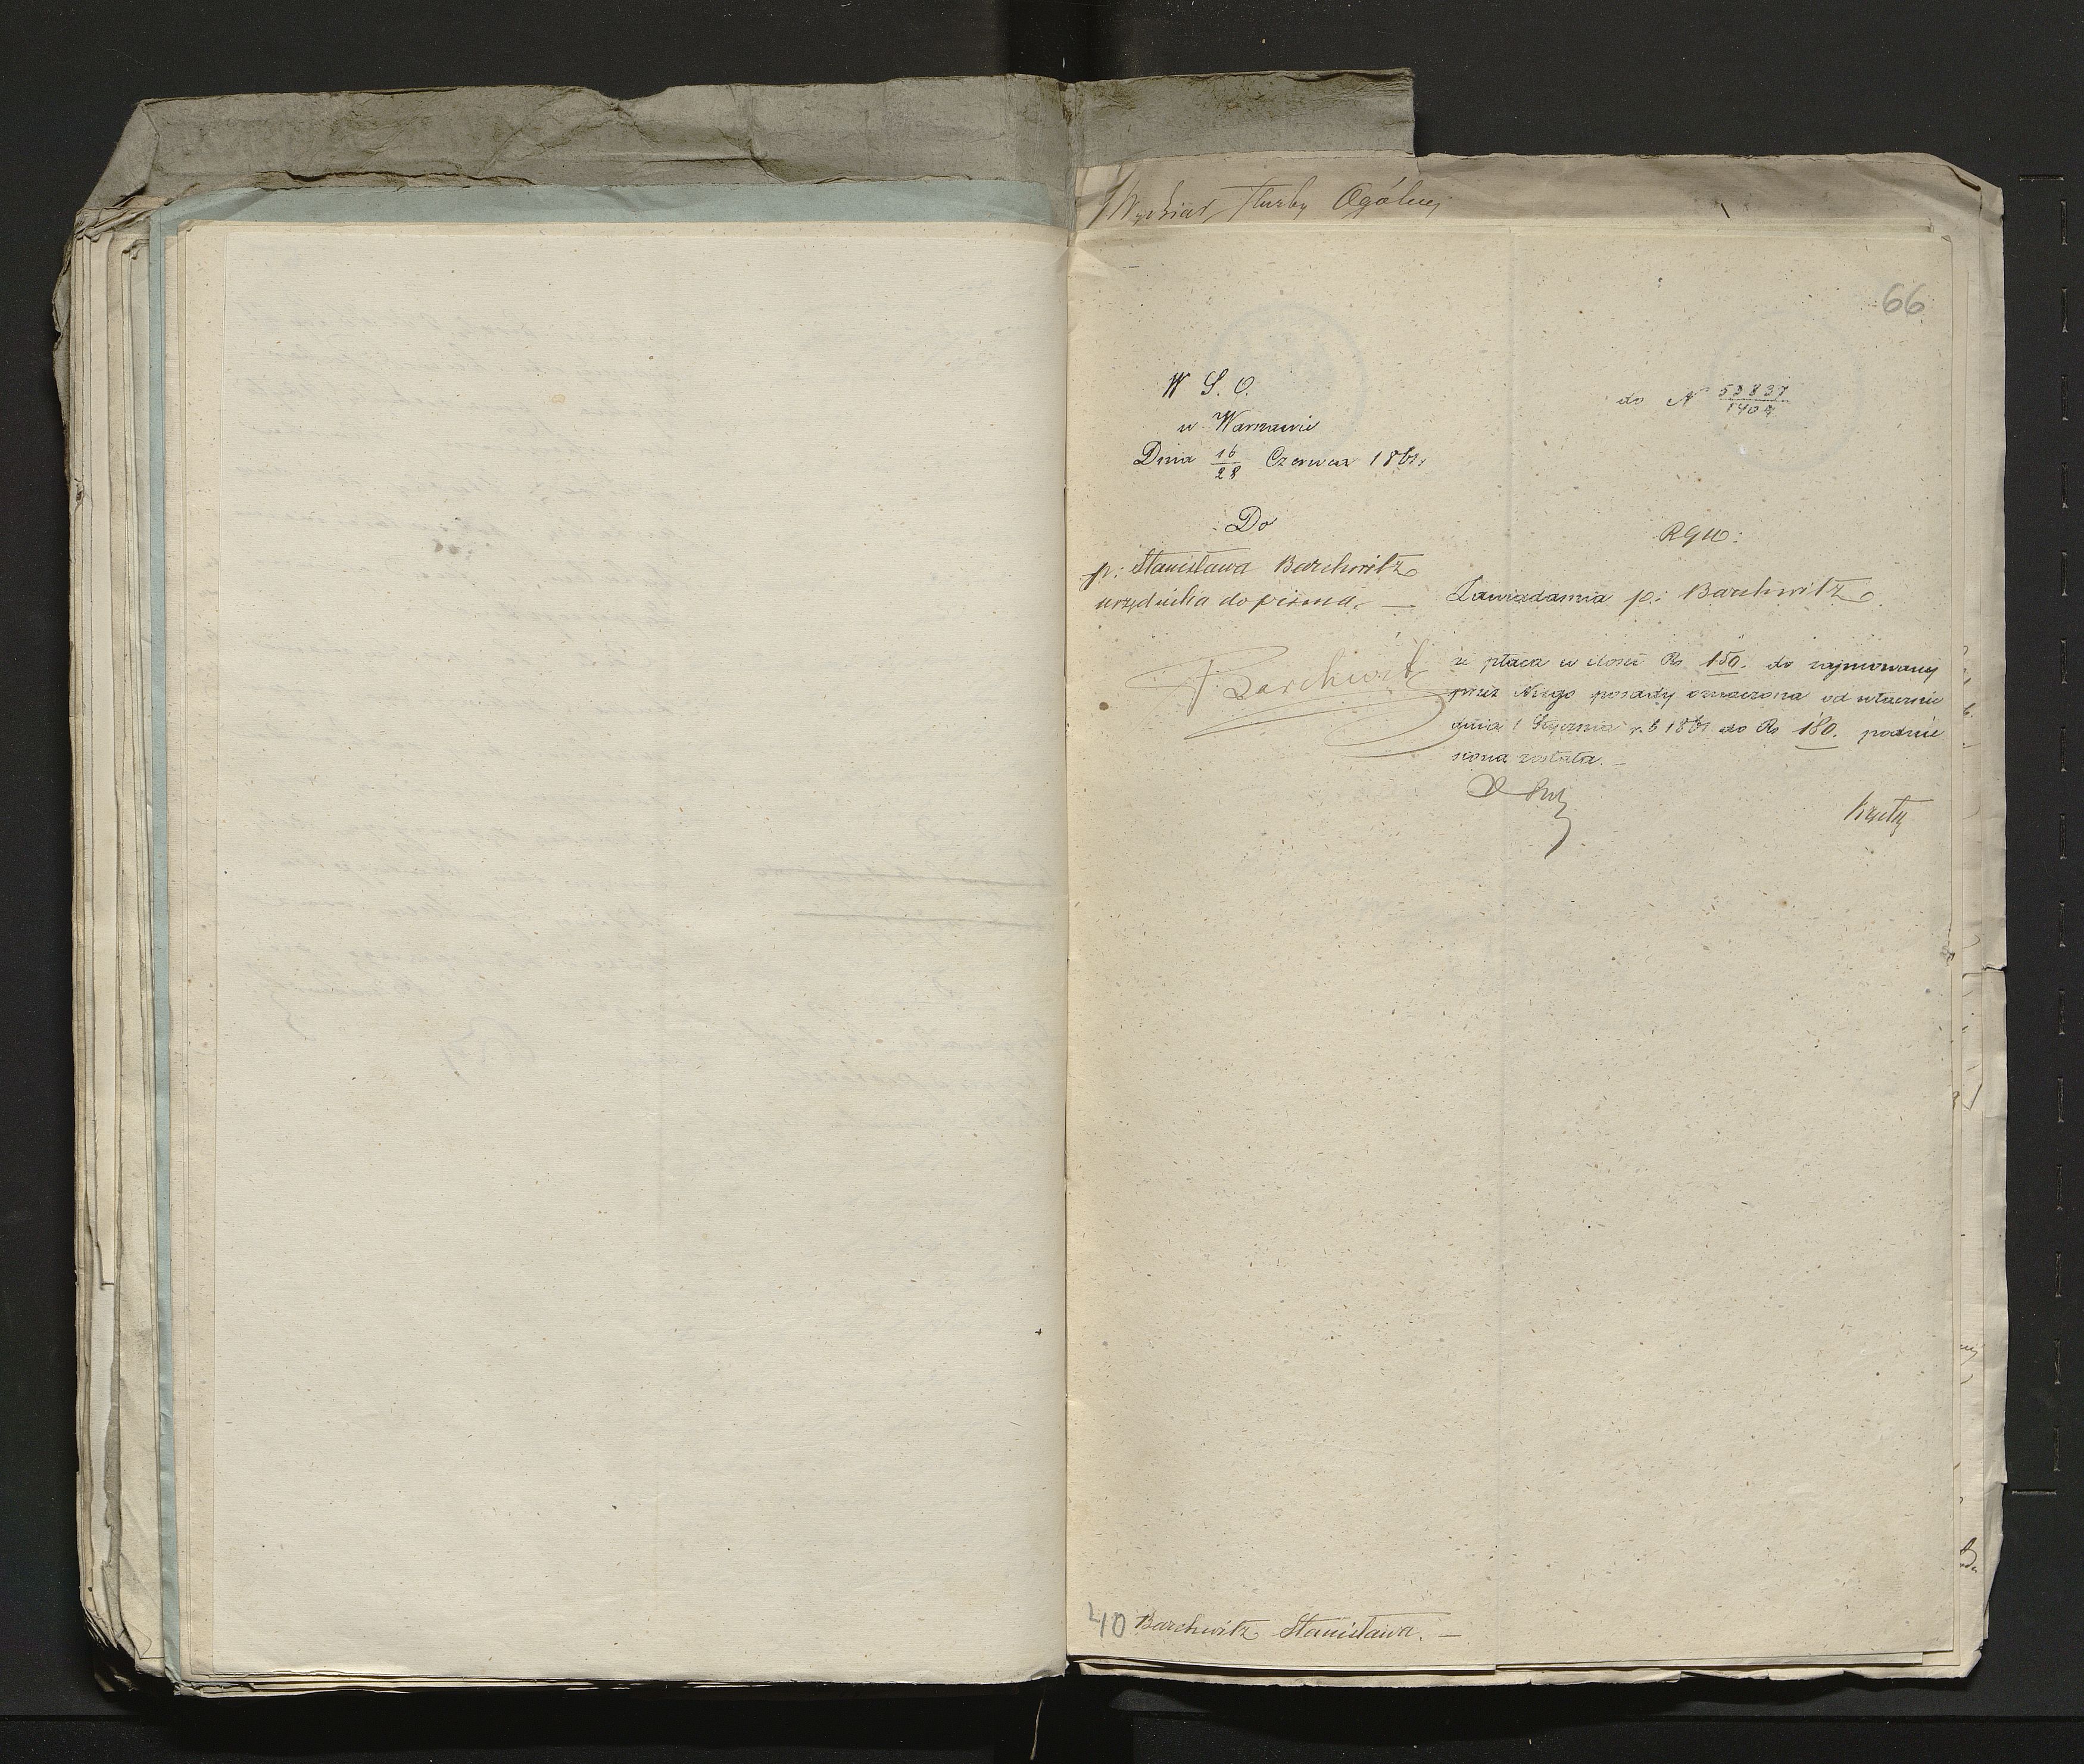 Wydział Służby Ogólnej
66
W S. O.
w Warszawie
Dnia 16/28 Czerwca 1861 r.
do N 53837/1407
Do
p: Stanisława Barchwitz
urzędnika do pisma. —
Barchwitz
RGW:
Zawiadamia p: Barchwitz
że płaca w ilości Rs 150. do zajmowanej
przez Niego posady oznaczona od włącznie
dnia 1 Stycznia r. b 1861 do Rs 180. podnie
siona została. —
40 Barchwitz Stanisława. —